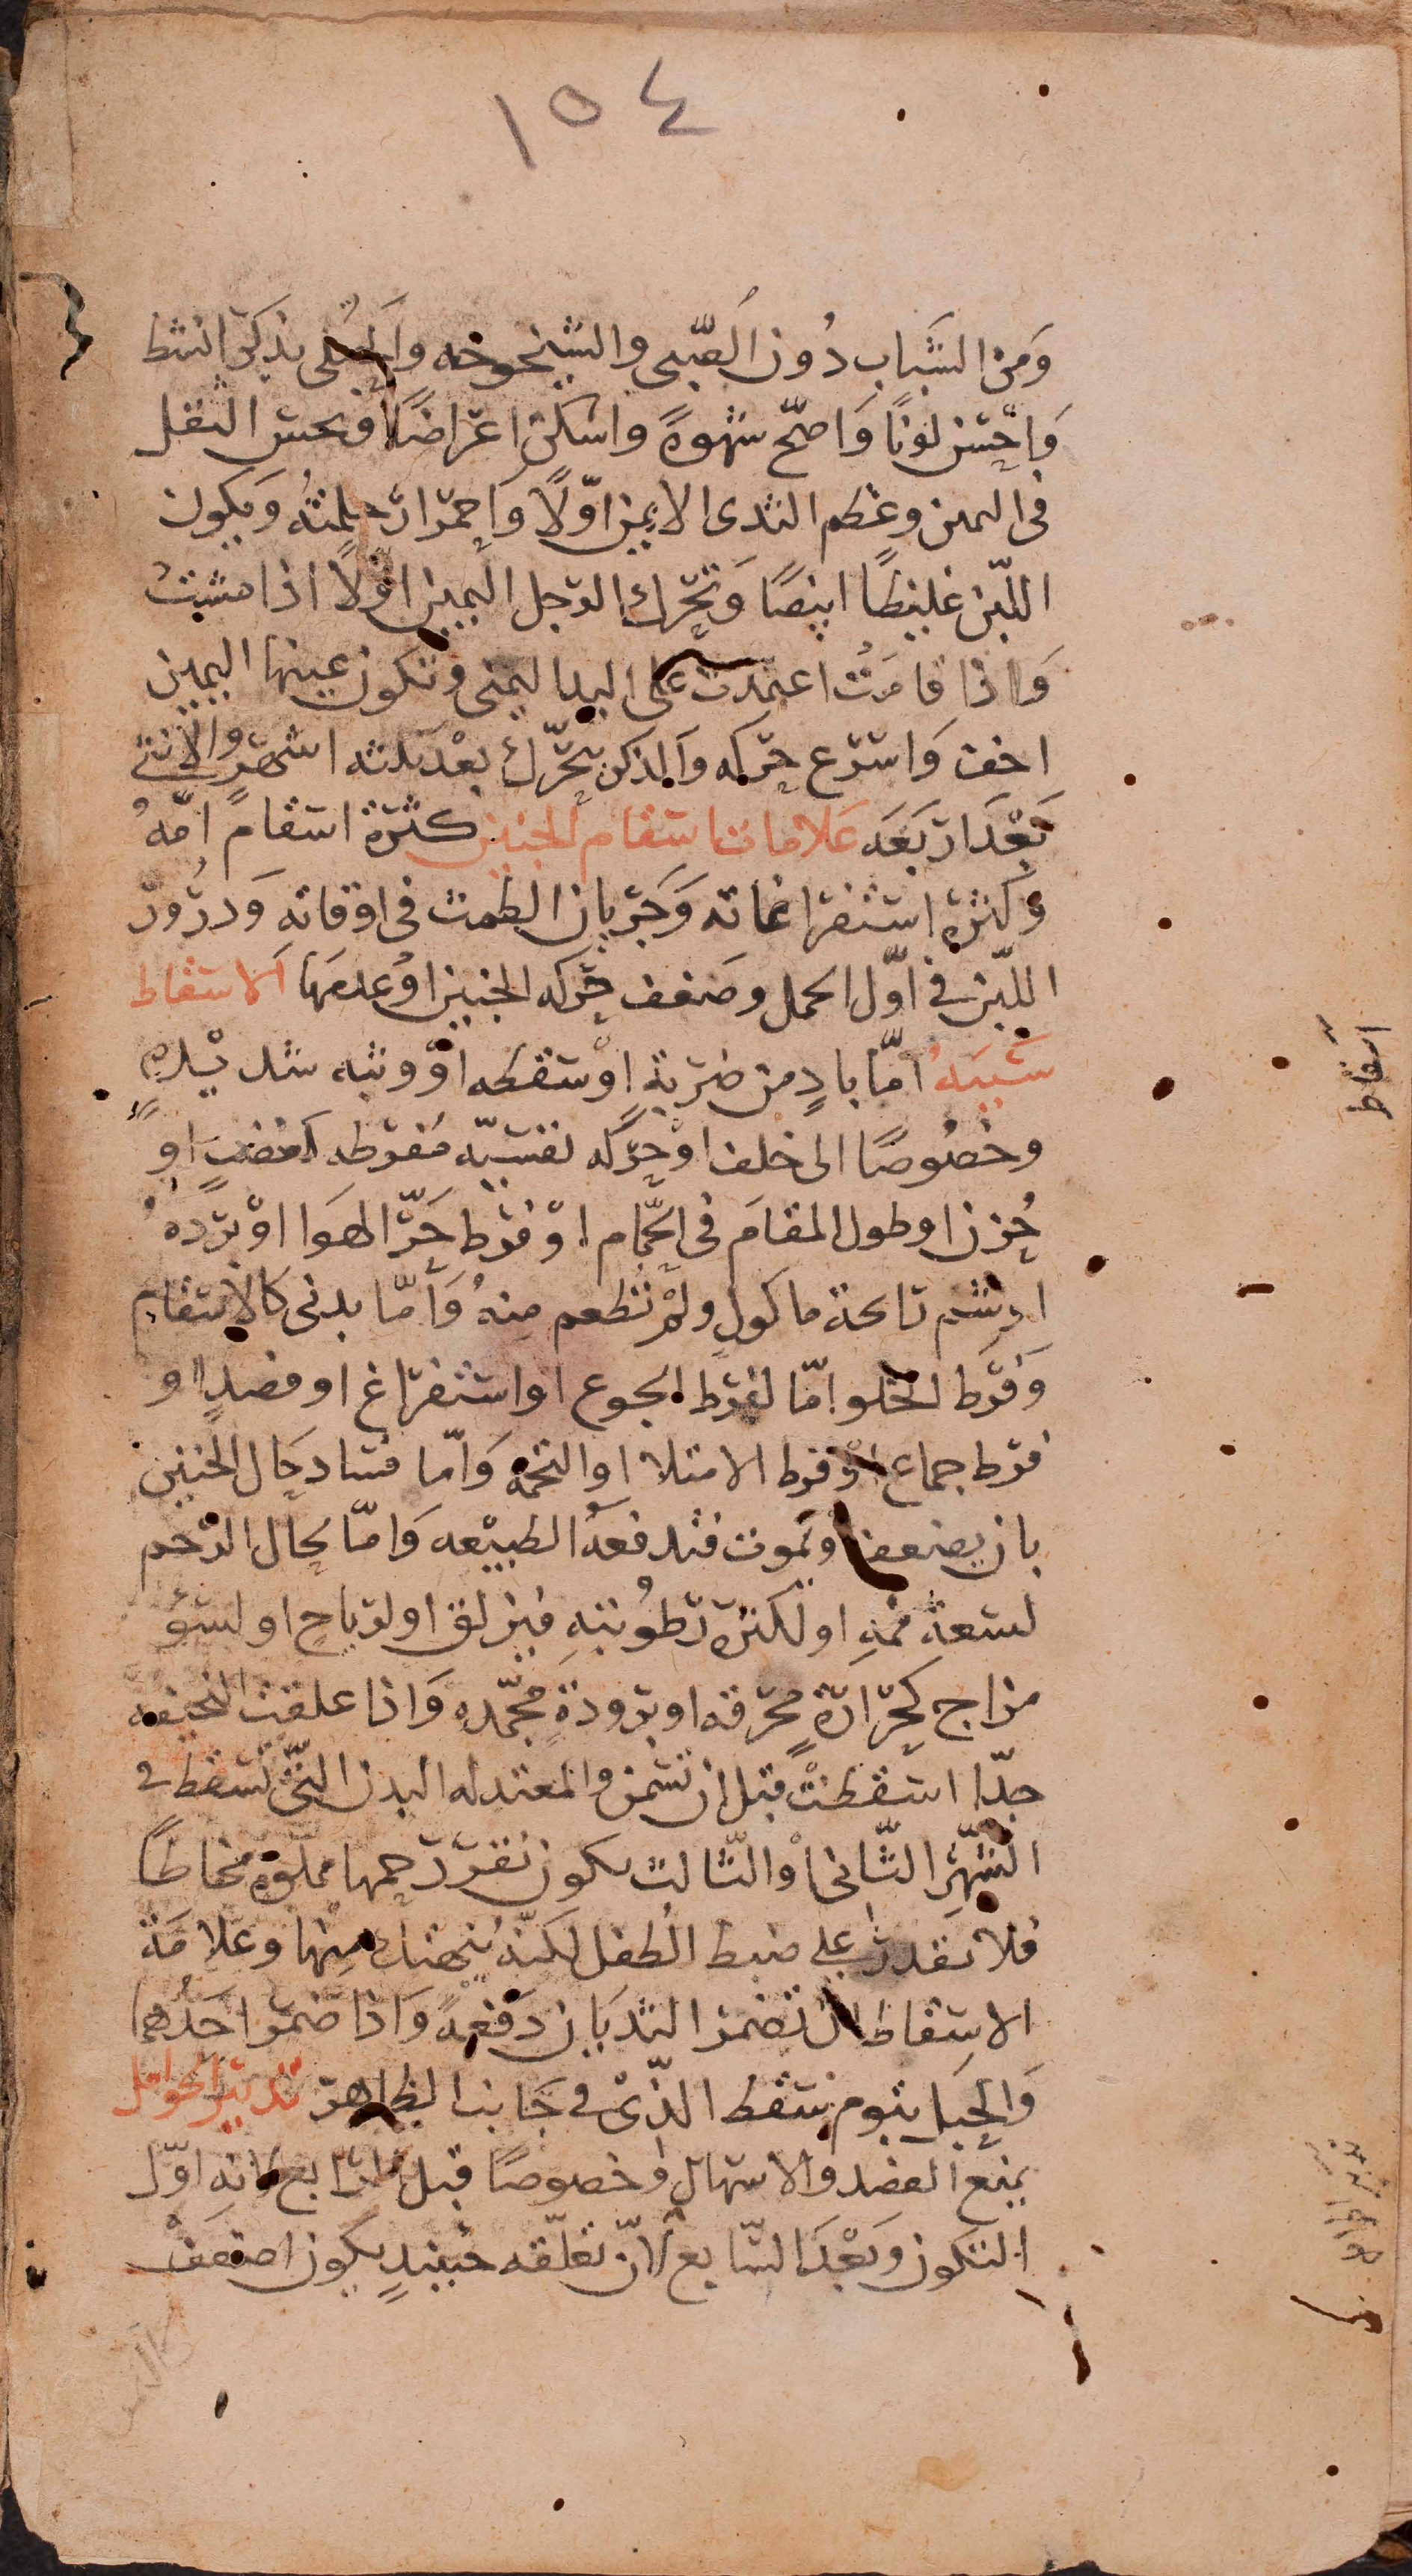 ١٥٤
وَمن الشَباب دُون الصّبى والشيخوخه والحبلى بذكر انشط
وَاحسَن لونًا وَاصحّ شهوةً واسكن اعراضًا وتحس الثقل
فى اليمين وعظم الثدى الايمن اوّلًا وَاحمرارَ حلمتهُ وَيكون
اللبَن غليظًا ابيضًا وَتحرك الرجل اليمين اوّلًا اذا مشيت
وَاذا قامَتْ اعتمدت على اليد اليمنى وتكون عينها اليمين
اخف وَاسرع حركه وَالذكر يتحرّك بعْد ثلثه اشهرٍ والانثى
بَعْدَ اربَعَه عَلامات اسقام الجنين كثرة اسقام امّهُ
وكثرة استفراغاته وَجَريان الطمث فى اوقاته وَدرُور
اللبَن فى اوّل الحمل وضعف حَركه الجنين اوْ عدمَها الاسقاط
سَببَهُ امّا بادٍ من ضربةٍ اوْ سقطه اوْ وثبه شديْدهٍ
وخصُوصًا الى خلف اوْ حركه نفسيّه مُفرطه كغضبٍ او
حُزن اوطول المقامَ فى الحَمّام اوْ فرْط حَرّ الهوَا اوْ بَرْده
اوشم رائحة ماكولٍ ولم تطعم مِنهُ وَامّا بدنى كالاسقام
وَفرَط الخلو امّا لفرط الجوع اواستفراغ او فصدٍ او
فرط جماع اوْ فرط الامتلا او التخمه وَامّا فسَاد حَال الجنين
بان يضعف اويموت فتدفعهُ الطبيْعه وَامّا لحال الرّحم
لسعة فمهِ او لكثرة رَطوُبتهِ فيزلق اولرياحٍ اولسَو
مزاج كحرَارةٍ محرقه اوبرودةٍ مجمّدهٍ وَاذا علقت النحيفه
جدّا اسقطتْ قبل ان تسْمن والمعتدله البدن التى تسقط فى
الشهْر الثّانى اوْ الثّالث يكون نقر رَحمها مملوّه مخاطًا
فلا تقدر على ضبط الطفل لكنّهُ ينهتك مِنها وعَلامَة
الاسقاط ان تضمر الثديَان دَفعهً وَاذا ضمر احَدُهما
وَالحبل بتوم سَقط الذّى فى جَانب الظاهر تدبير الحوامل
يمنع الفصد والاسهال وخصوصًا قبل الرّابع لانه اوّل
التكون وَبَعْدَ السَّابع لانّ تعلّقه حينيدٍ يكون اضعف
اسقاط